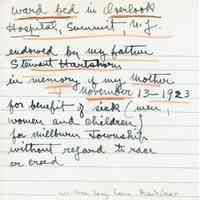 ward bed in Overlook
Hospital, Summit, N.J.
endowed by my father
Stewart Hartshorn
in memory of my mother
November 13-1923
for benefit of sick (men,
women and children)
for Millburn Township
without regard to race
or creed